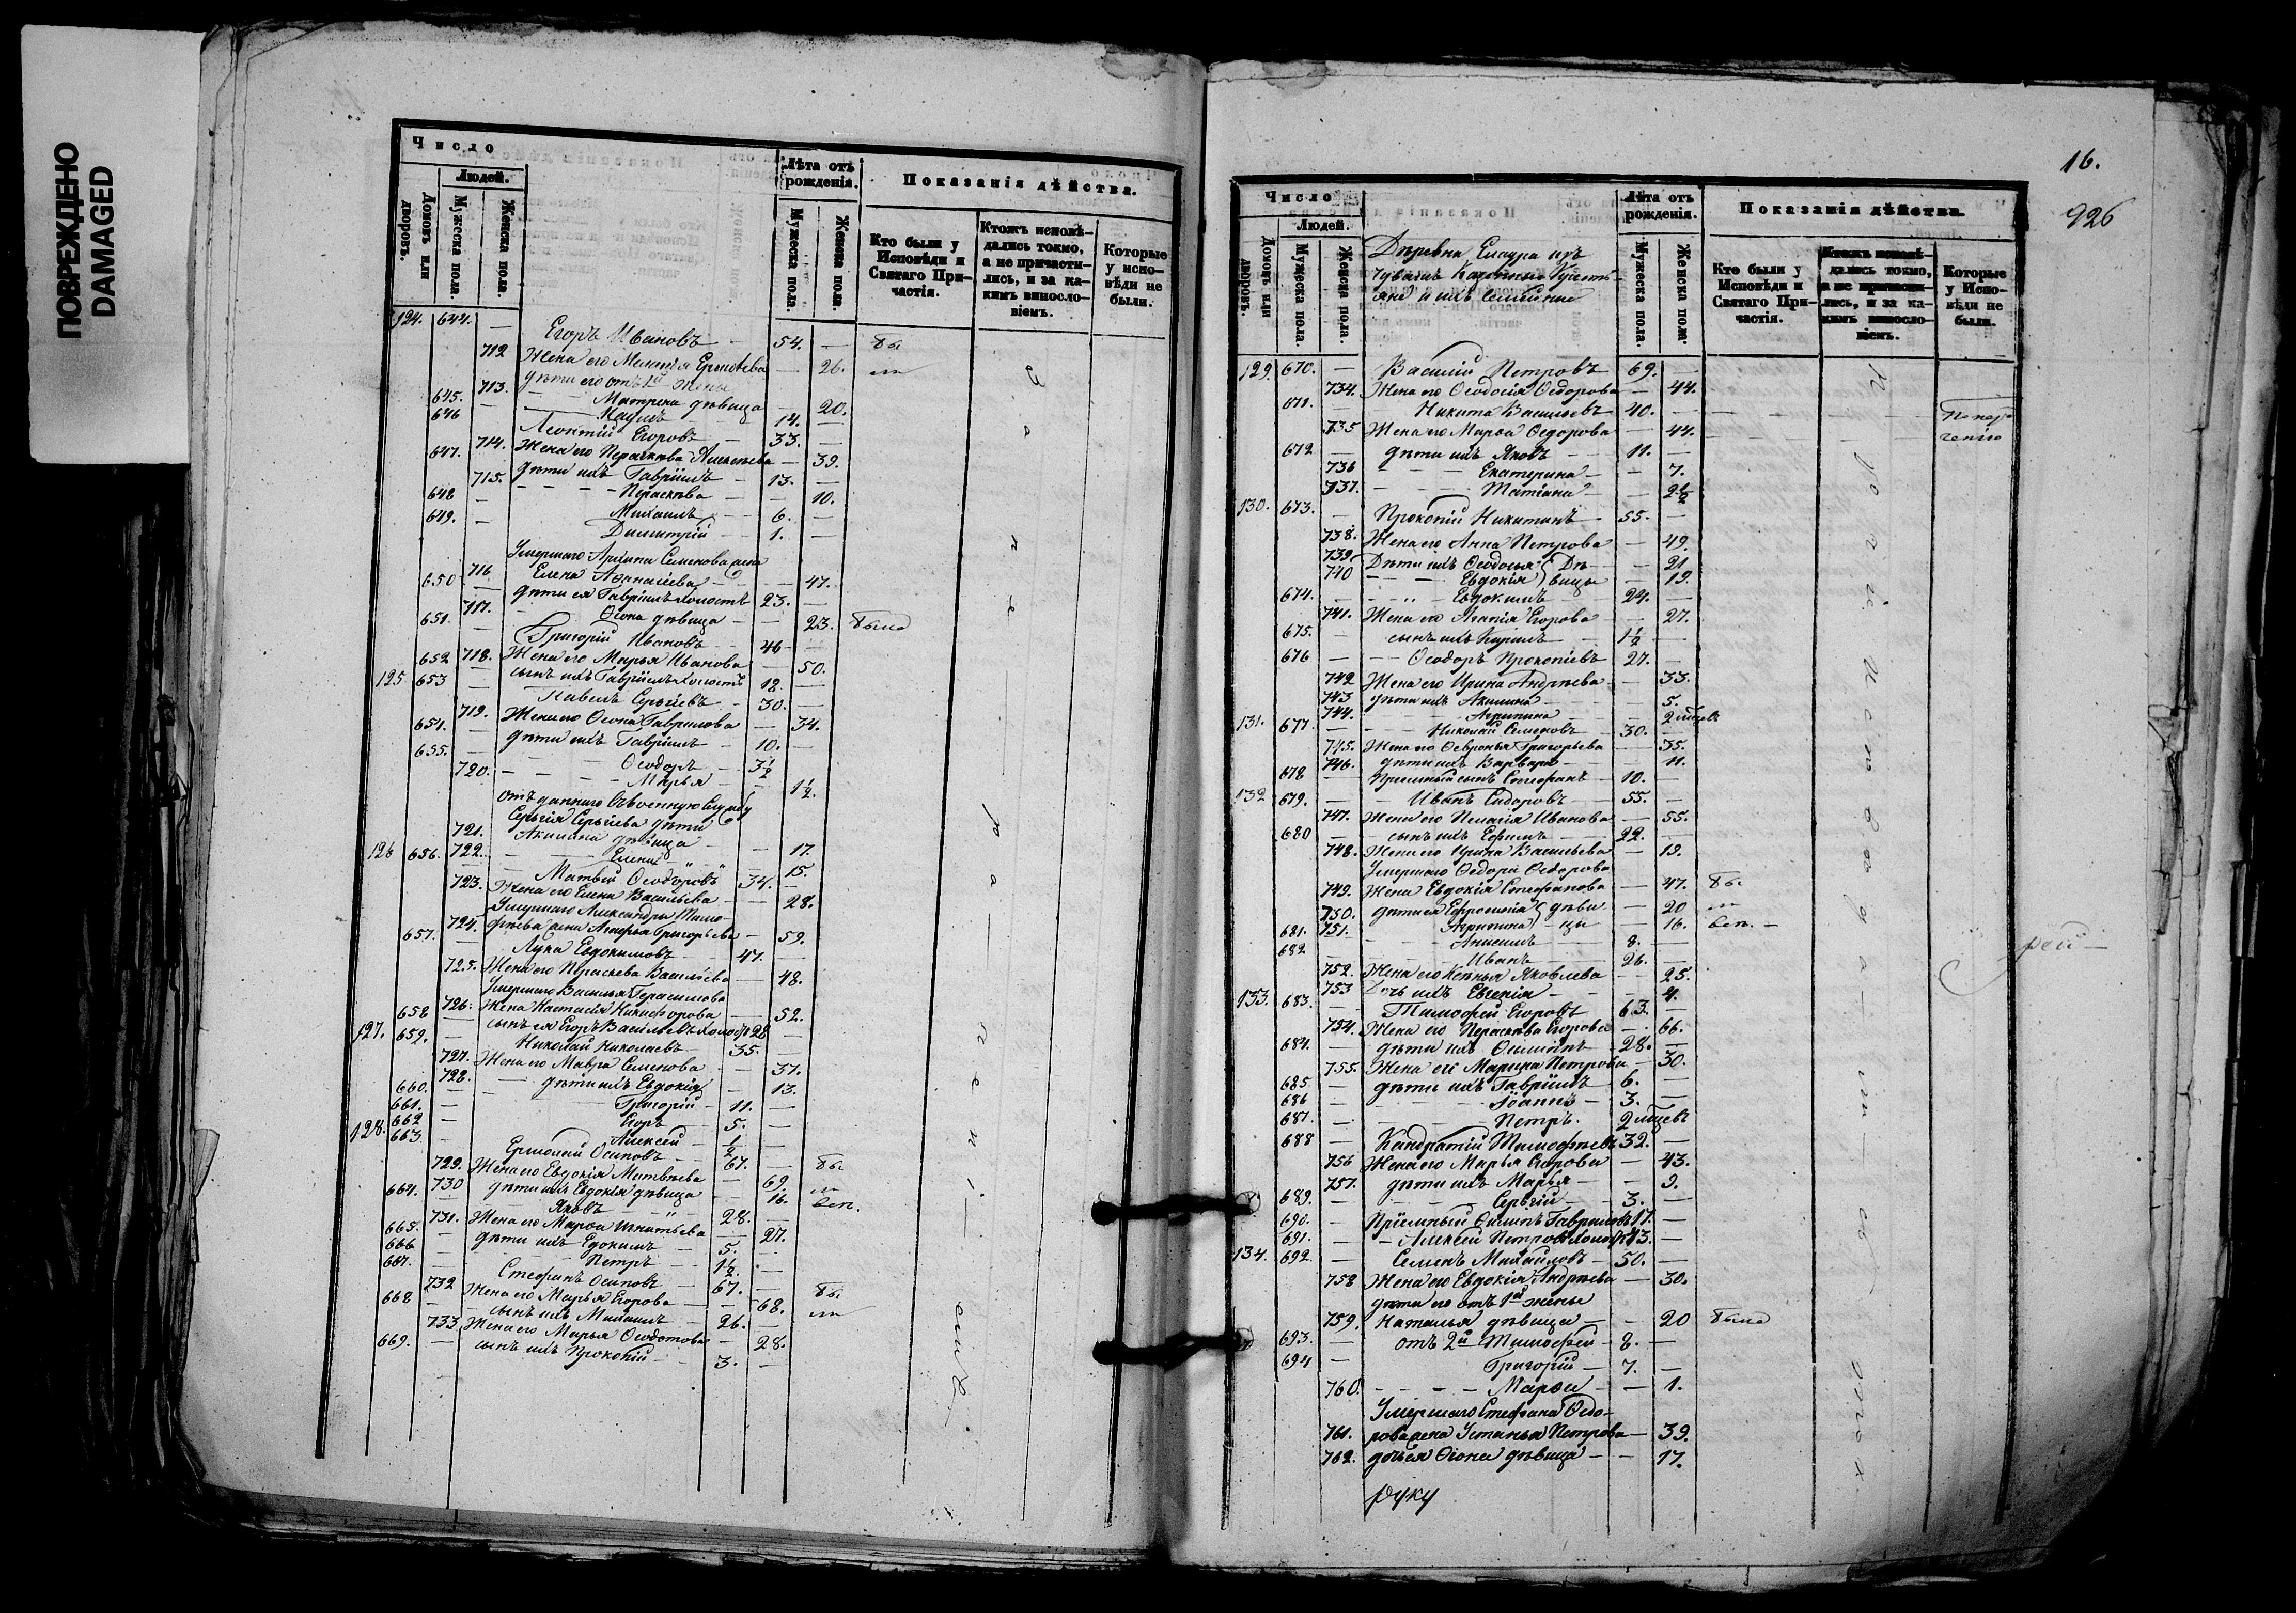 ПОВРЕЖДЕНО
DAMAGED
Число
Людей.
Домовъ или дворовъ.
Мужеска пола.
Женска пола.
Лѣта отъ рожденія.
Мужеска пола.
Женска пола.
Показанія дѣйства.
Кто были у Исповѣди и Святаго Причастія.
Ктожъ исповѣдались токмо, а не причастились, и за какимъ винословіемъ.
Которые у исповѣди не были.
124. 644. — Егоръ Ивановъ — 54. — бы
712 Жена его Меланія — 26. ли
дѣти его отъ 1й жены
713. Матрена дѣвица — 20.
645. — Наумъ 14. —
646 — Леонтій Егоровъ — 33. —
714. Жена его Параскева Алексѣева — 39.
647. дѣти ихъ Гавріилъ — 13. —
715. — Параскева — 10.
648 — Михаилъ — 6. —
649. — Димитрій — 1. —
Умершаго Архипа Семенова жена
716 Елена Афанасіева — 47.
650 — дѣти ея Гавріилъ холостъ 23. —
717. Ѳеона дѣвица — 23. была
651. — Григорій Ивановъ 46 —
718. Жена его Марья Иванова — 50.
652 — сынъ ихъ Гавріилъ холостъ 18. —
125. 653 — Павелъ Сергѣевъ — 30. —
719. Жена его Ѳеона Гаврилова — 34.
654. — дѣти ихъ Гавріилъ — 10. —
655. — Ѳеодоръ — 3½
720. — Марья — 1½.
отъ даннаго въ военную службу
Сергія Сергѣева дѣти
721. Акилина дѣвица — 17.
722. — Елена — " — 15.
126 656. — Матвій Ѳеодоровъ 34. —
723. Жена его Елена Васильева — 28.
Умершаго Александра Тимо-
724. фѣева жена Агафья Григорьева — 59.
657. — Лука Евдокимовъ — 47. —
725. Жена его Параскева Васильева — 48.
Умершаго Василья Герасимова
726. Жена Настасія Никифорова — 52.
658 — сынъ ея Егоръ Васильевъ холостъ 28 —
127. 659. — Николай Николаевъ 35. —
727. Жена его Мавра Семенова — 37.
728. — дѣти ихъ Евдокія — 13.
660. — Григорій — 11. —
661. — Егоръ — 5. —
662 — Алексей — ½
128. 663. — Ермолай Осиповъ — 67. — бы
729. Жена его Евдокія Матвѣева — 69. ли
730 дѣти ихъ Евдокія дѣвица — 16. всѣ.
664. — Яковъ — 28. —
731. Жена его Марѳа Игнатьева — 27.
665. — дѣти ихъ Едокимъ — 5. —
666 — Петръ — 1½. —
667. — Стефанъ Осиповъ 67. — бы
732 Жена его Марья Егорова — 68. ли
668 — сынъ ихъ Михаилъ — 26. —
733 Жена его Марья Ѳеодотова — 28.
669. — сынъ ихъ Прокопій — 3. —
16.
926
Число
Людей.
Домовъ или дворовъ.
Мужеска пола.
Женска пола.
Лѣта отъ рожденія.
Мужеска пола.
Женска пола.
Показанія дѣйства.
Кто были у Исповѣди и Святаго Причастія.
Ктожъ исповѣдались токмо, а не причастились, и за какимъ винословіемъ.
Которые у Исповѣди не были.
Деревна изъ
чувашъ Крестья-
яне и ихъ семейные
129. 670. — Василій Петровъ 69. —
734. Жена его Ѳеодосія Ѳедорова — 44.
671. — Никита Васильевъ 40. — По нера-
735 Жена его Марѳа Ѳедорова — 44. — ченію
672 — дѣти ихъ Яковъ — 11. —
736 — Екатерина — 7.
737. — Татіана — 2½
130. 673. — Прокопій Никитинъ 55. —
738. Жена его Анна Петрова — 49.
739. Дѣти ихъ Ѳеодосья (Дѣ- — 21
740 — Евдокія) вицы — 19.
674. — Евдокимъ — 24. —
741. Жена его Агапія Егорова — 27.
675. — сынъ ихъ Кирилъ — 1½ —
676 — Ѳеодоръ Прокопіевъ 27. —
742 Жена его Ирина Андрѣева — 33.
743 дѣти ихъ Акилина — 5.
744. — Агрипина — 2 мѣсяв
131. 677. — Николай Семеновъ 30. —
745. Жена его Ѳевронья Григорьева — 35.
746. дѣти ихъ Варвара — 11.
678 — Пріемный сынъ Стефанъ — 10. —
132 679. — Иванъ Сидоровъ — 55. —
747. Жена его Пелагія Иванова — 55.
680 — сынъ ихъ Ефимъ — 22. —
748. Жена его Ирина Васильева — 19.
Умершаго Ѳедора Ѳедорова
749. Жена Евдокія Стефанова — 47. бы
750. дѣти ея Ефросинія (дѣви — 20 ли
751. Агрипина) — цы — 16. всѣ. —
681. — Анисимъ — 8. —
682 — Иванъ — 26. —
752. Жена его Ксенья Яковлева — 25.
753 Дочь ихъ Евгенія — 4.
133. 683. — Тимофей Егоровъ 63. —
754. Жена его Параскева Егорова — 66.
684. — дѣти ихъ Филипъ — 28. —
755. Жена его Марина Петрова — 30.
685 — дѣти ихъ Гавріилъ — 6. —
686 — Іоаннъ — 3. —
687. — Петръ. 2 мѣсяв
688 — Кандратій Тимофѣевъ 32. —
756 Жена его Марья Егорова — 43.
757. дѣти ихъ Марья — 9.
689. — Сергій — 3. —
690. — Пріемный Филипъ Гавриловъ 17. —
691. — Алексѣй Петровъ холостъ 43. —
134. 692 — Семенъ Михайловъ — 50. —
758 Жена его Евдокія Андрѣева — 30.
дѣти его отъ 1й жены
759. Наталья дѣвица — 20 была
693. — отъ 2й Тимофей — 8. —
694 — Григорій — 7. —
760. — Марѳа — 1.
Умершаго Стефана Ѳедо-
761. рова жена Устинья Петрова — 39.
762. дочь ея Ѳіона дѣвица — 17.
руку